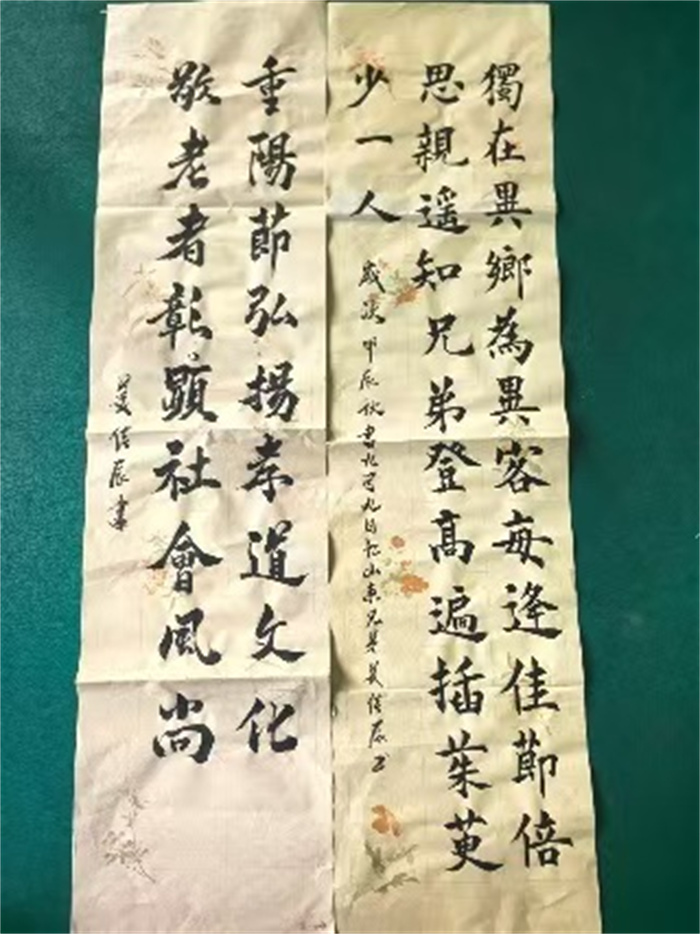 獨在異鄉為異客每逢佳節倍
思親遥知兄弟登高遍插茱萸
少一人
歲次甲辰秋書九月九日忆山東兄弟姜佳辰书
重陽節弘揚孝道文化
敬老者彰顯社會風尚
姜佳辰書